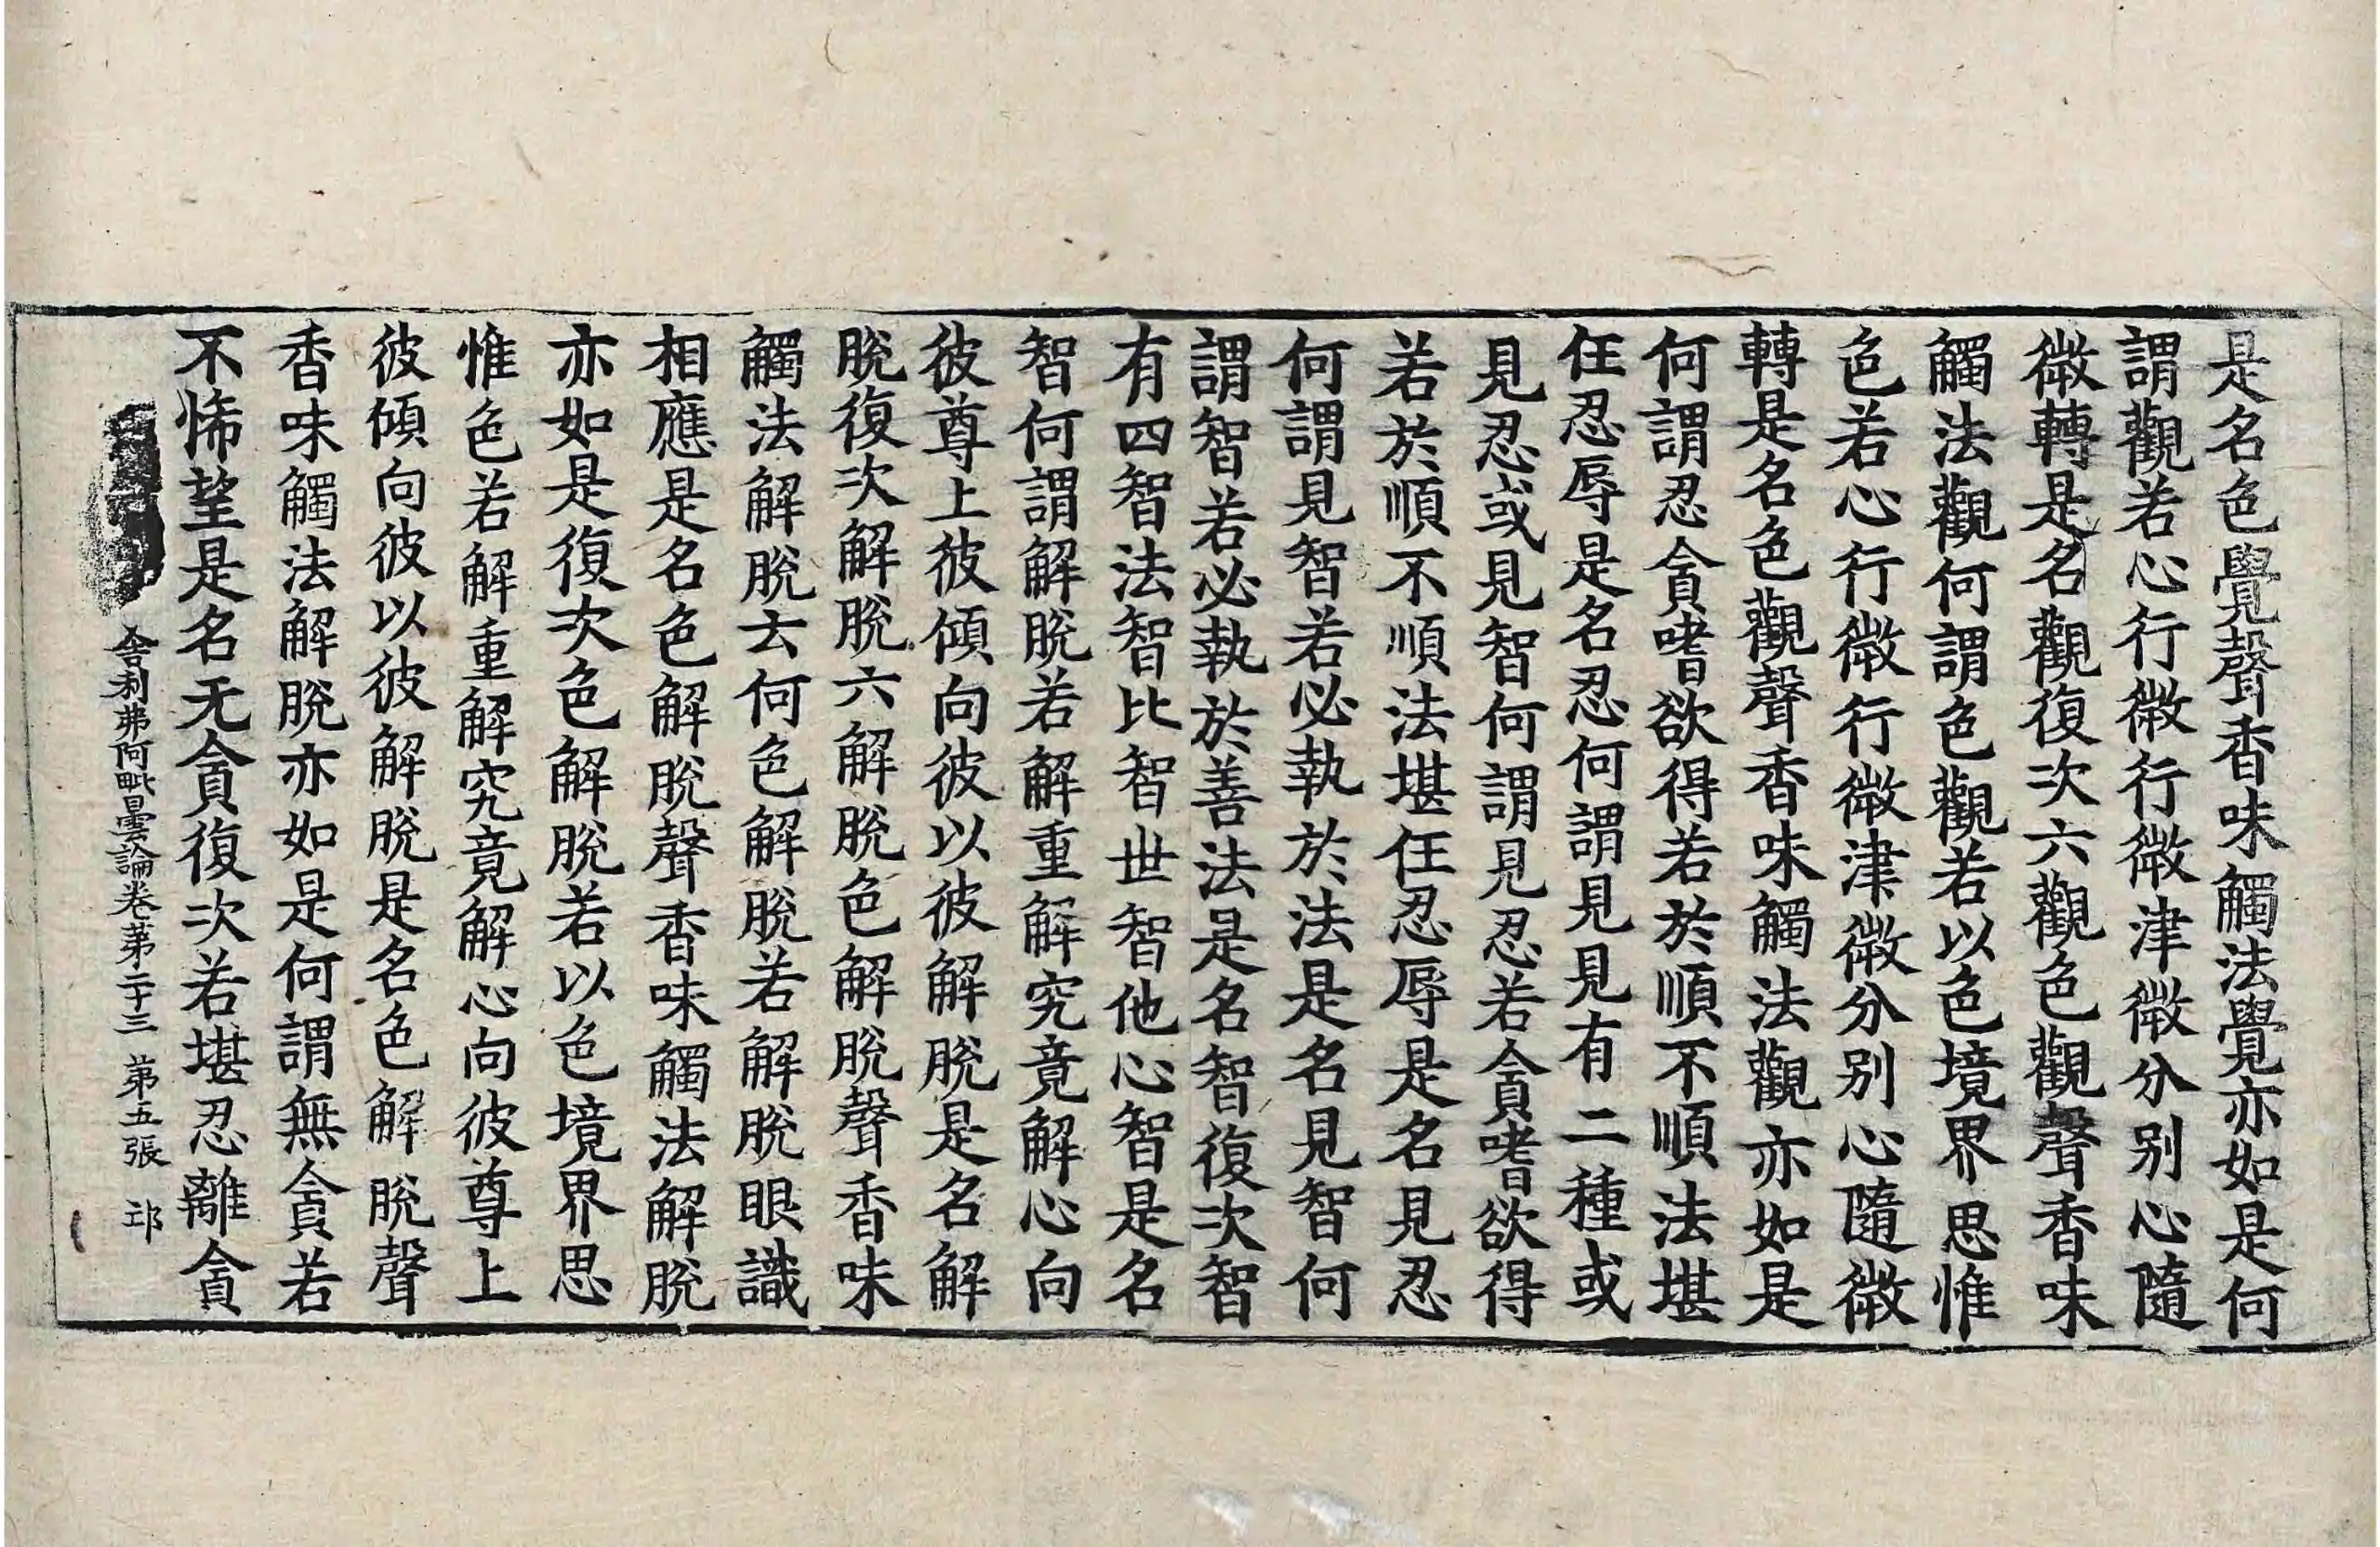 是名色覺聲香味觸法覺亦如是何
謂觀若心行微行微津微分別心隨
微轉是名觀復次六觀色觀聲香味
觸法觀何謂色觀若以色境界思惟
色若心行微行微津微分別心隨微
轉是名色觀聲香味觸法觀亦如是
何謂忍貪嗜欲得若於順不順法堪
任忍辱是名忍何謂見見有二種或
見忍或見智何謂見忍若貪嗜欲得
若於順不順法堪任忍辱是名見忍
何謂見智若必執於法是名見智何
謂智若必執於善法是名智復次智
有四智法智比智世智他心智是名
智何謂解脫若解重解究竟解心向
彼尊上彼傾向彼以彼解脫是名解
脫復次解脫六解脫色解脫聲香味
觸法解脫云何色解脫若解脫眼識
相應是名色解脫聲香味觸法解脫
亦如是復次色解脫若以色境界思
惟色若解重解究竟解心向彼尊上
彼傾向彼以彼解脫是名色解脫聲
香味觸法解脫亦如是何謂無貪若
不悕望是名无貪復次若堪忍離貪
舍利弗阿毗曇論卷苐二十三 苐五張 邙